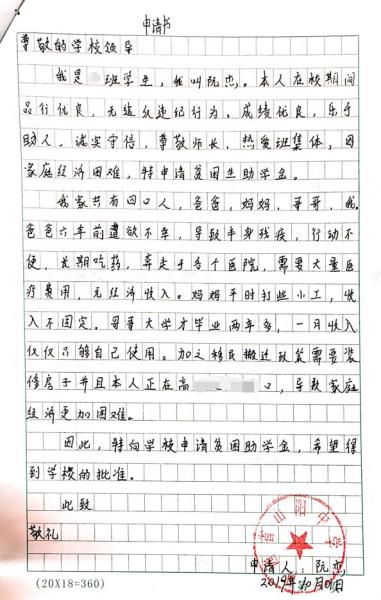 申请书
尊敬的学校领导
我是 班学生，我叫阮杰。本人在校期间
品行优良，无违反违纪行为，成绩优良，乐于
助人，诚实守信，尊敬师长，热爱班集体，因
家庭经济困难，特申请贫困生助学金。
我家共有四口人，爸爸，妈妈，哥哥，我。
爸爸六年前遭欲不幸，导致半身残疾，行动不
便，长期吃药，奔走于各个医院，需要大量医
疗费用，无经济收入。妈妈平时打些小工，收
入不固定，哥哥大学才毕业两年多，一月收入
仅仅只够自己使用。加之移民搬迁政策需要装
修房子并且本人正在高 口，导致家庭
经济更加困难。
因此，特向学校申请贫困助学金，希望得
到学校的批准。
此致
敬礼
山阳中学
申请人：阮杰
2019年10月0日
(20X18=360)